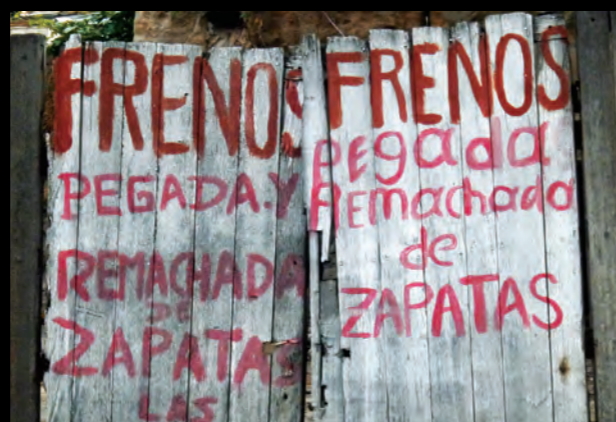 FRENOS
PEGADA.Y
REMACHADA
DE
ZAPATAS
LAS
FRENOS
Pegada
REmachado
de
ZAPATAS